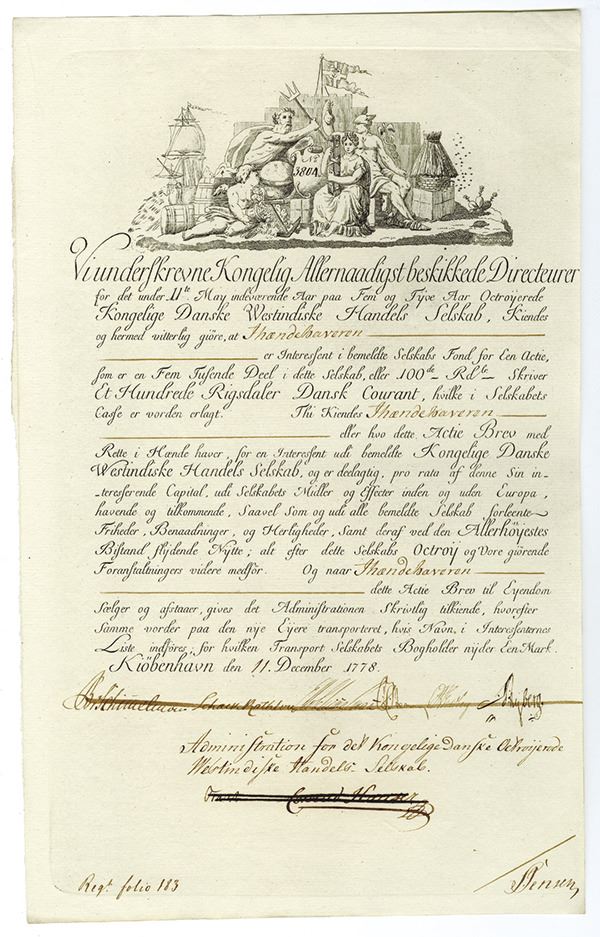 No
380A.
Vi underskrevne Kongelig Allernaadigst beskikkede Directeurer
for det under 11te May indeværende Aar paa Fem og Tyve Aar Octroyerede
Kongelige Danske Westindiske Handels Selskab, Kiendes
og hermed vitterlig giöre, at Ihændehaveren
er Interessent i bemeldte Selskabs Fond for Een Actie,
som er en Fem Tusende Deel i dette Selskab, eller 100de Rdle Skriver
Et Hundrede Rigsdaler Dansk Courant, hvilke i Selskabets
Casse er vorden erlagt. Thi Kiendes Ihændehaveren
eller hvo dette Actie Brev med
Rette i Hænde haver, for en Interessent udi bemeldte Kongelige Danske
Westindiske Handels Selskab, og er deelagtig, pro rata af denne Sin in-
teresserende Capital, udi Selskabets Midler og Effecter inden og uden Europa,
havende og tilkommende, Saavel Som og udi alle bemeldte Selskab forleente
Friheder, Benaadninger, og Herligheder, Samt deraf ved den Allerhöyestes
Bistand flydende Nytte; alt efter dette Selskabs Octroij og Vore giörende
Foranstaltningers videre medför. Og naar Ihændehaveren
dette Actie Brev til Eyendom
Sælger og afstaaer, gives det Administrationen Skrivtlig tilkiende, hvorefter
Samme vorder paa den nije Eijere transporteret, hvis Navn, i Interessenternes
Liste indföres, for hvilken Transport Selskabets Bogholder nijder Een Mark.
Kiöbenhavn den 11. December 1778.
Schimmelmann Ryberg
Administration for det Kongelige Danske Octroijende
Westindiske Handels-Selskab.
Regt. folio 183
Jensen